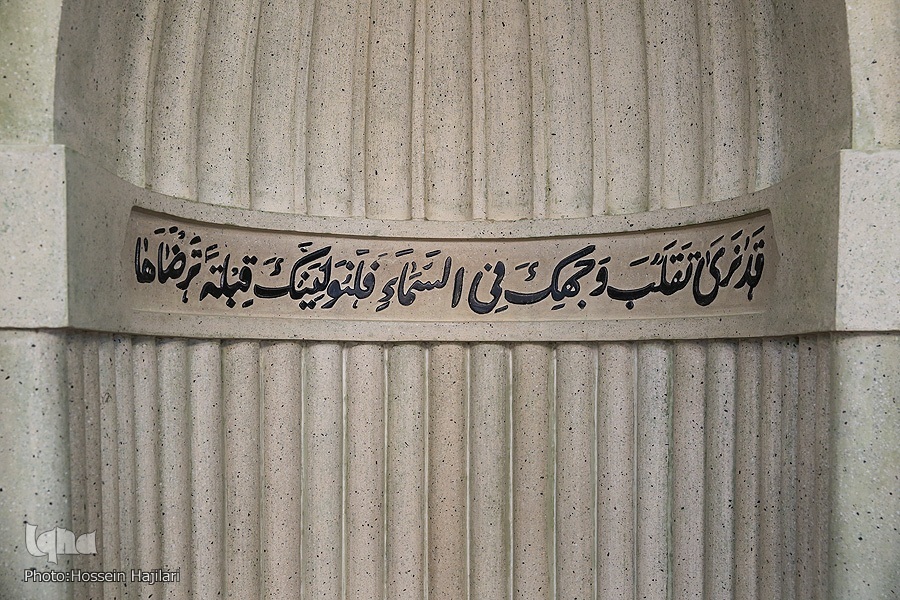 قَدْ نَرَىٰ تَقَلُّبَ وَجْهِكَ فِي السَّمَاءِ فَلَنُوَلِّيَنَّكَ قِبْلَةً تَرْضَاهَا
Iqna
Photo:Hossein Hajilari